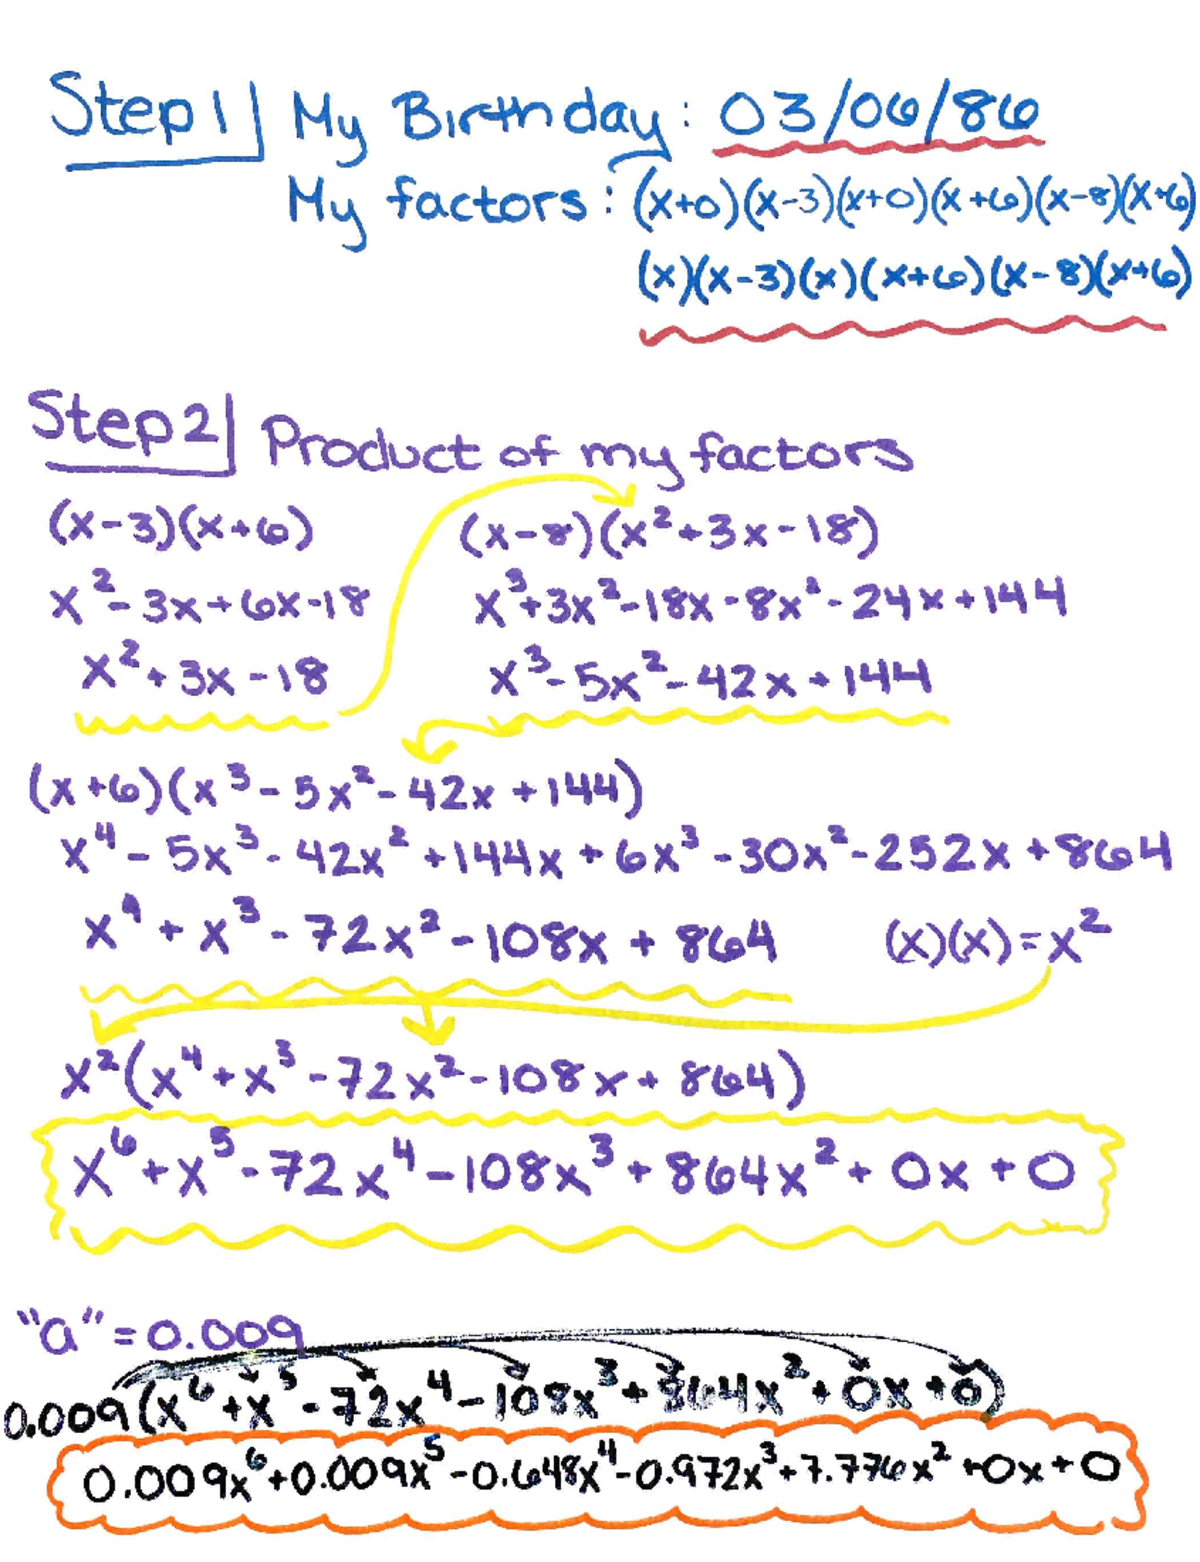 Step 1 My Birthday: 03/06/86
My factors: (x+0)(x-3)(x+0)(x+6)(x-8)(x+6)
(x)(x-3)(x)(x+6)(x-8)(x+6)
Step 2 Product of my factors
(x-3)(x+6)
x²-3x+6x-18
x²+3x-18
(x-8)(x²+3x-18)
x³+3x²-18x-8x²-24x+144
x³-5x²-42x+144
(x+6)(x³-5x²-42x+144)
x⁴-5x³-42x²+144x+6x³-30x²-252x+864
x⁴+x³-72x²-108x+864
(x)(x)=x²
x²(x⁴+x³-72x²-108x+864)
x⁶+x⁵-72x⁴-108x³+864x²+0x+0
"a"=0.009
0.009(x⁶+x⁵-72x⁴-108x³+864x²+0x+0)
0.009x⁶+0.009x⁵-0.648x⁴-0.972x³+7.776x²+0x+0